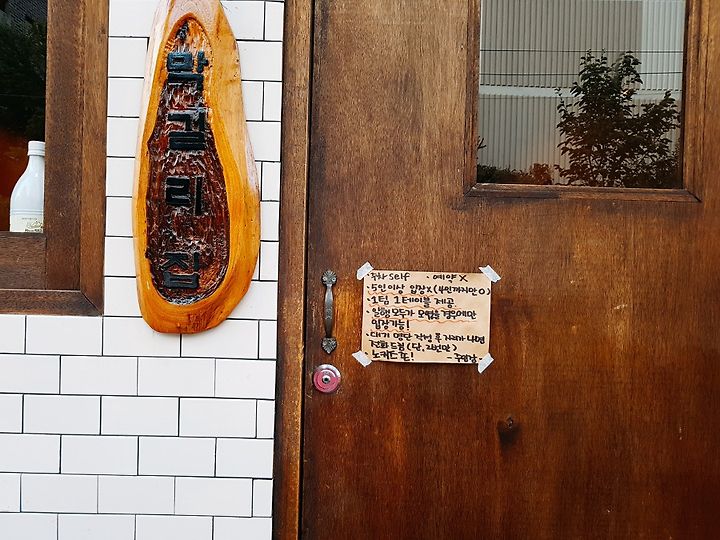 막걸리집
·주차 self ·예약 X
·5인이상 입장X (4인까지만 O)
·1팀 1테이블 제공
·일행 모두가 모였을 경우에만
입장가능!
·대기 명단 작성 후 자리가 나면
전화드림 (단, 2번만)
·노키즈존! -주인장-